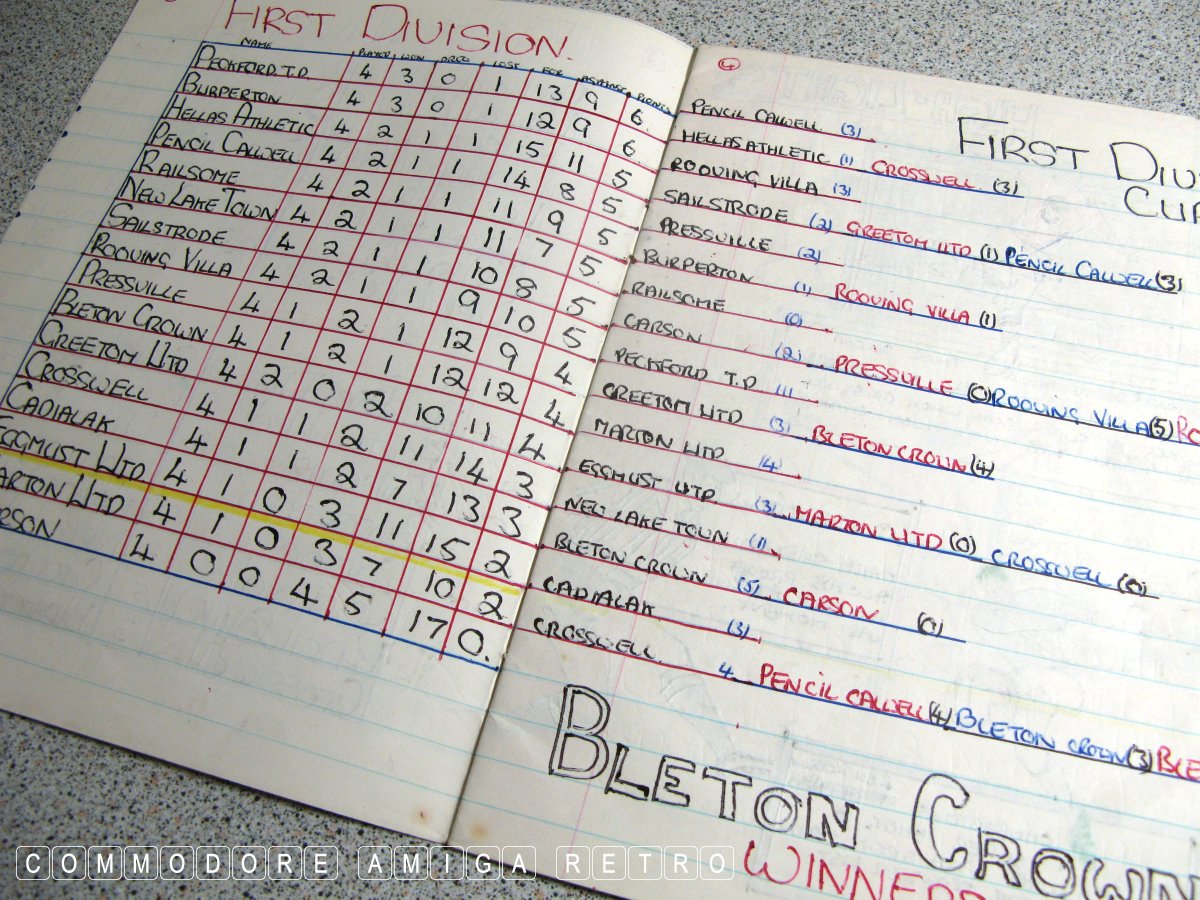 FIRST DIVISION.
NAME PLAYED WON DRAW LOSE FOR AGAINST POINTS
PECKFORD T.D. 4 3 0 1 13 9 6
BURPERTON 4 3 0 1 12 9 6
HELLAS ATHLETIC 4 2 1 1 15 11 5
PENCIL CALLWELL 4 2 1 1 14 8 5
RAILSOME 4 2 1 1 11 9 5
NEW LAKE TOWN 4 2 1 1 11 7 5
SAILSTRODE 4 2 1 1 10 8 5
ROOVING VILLA 4 2 1 1 9 10 5
PRESSVILLE 4 1 2 1 12 9 4
BLETON CROWN 4 1 2 1 12 12 4
GREETOM UTD 4 2 0 2 10 11 4
CROSSWELL 4 1 1 2 11 14 3
CADIALAK 4 1 1 2 7 13 3
EGGMUST UTD 4 1 0 3 11 15 2
ARTON UTD 4 1 0 3 7 10 2
RSON 4 0 0 4 5 17 0.
4
FIRST DIV
CUP
PENCIL CALLWELL (3)
HELLAS ATHLETIC (1) CROSSWELL (3)
ROOVING VILLA (3)
SAILSTRODE (2) GREETOM UTD (1) PENCIL CALLWELL (3)
PRESSVILLE (2)
BURPERTON (1) ROOVING VILLA (1)
RAILSOME (0)
CARSON (2) PRESSVILLE (0) ROOVING VILLA (5) RO
PECKFORD T.D (1)
GREETOM UTD (3) BLETON CROWN (4)
MARTON UTD (4)
EGGMUST UTD (3) MARTON UTD (0) CROSSWELL (0)
NEW LAKE TOWN (1)
BLETON CROWN (5) CARSON (0)
CADIALAK (3)
CROSSWELL 4 PENCIL CALLWELL (4) BLETON CROWN (3) BLE
BLETON CROWN
WINNERS
COMMODORE AMIGA RETRO